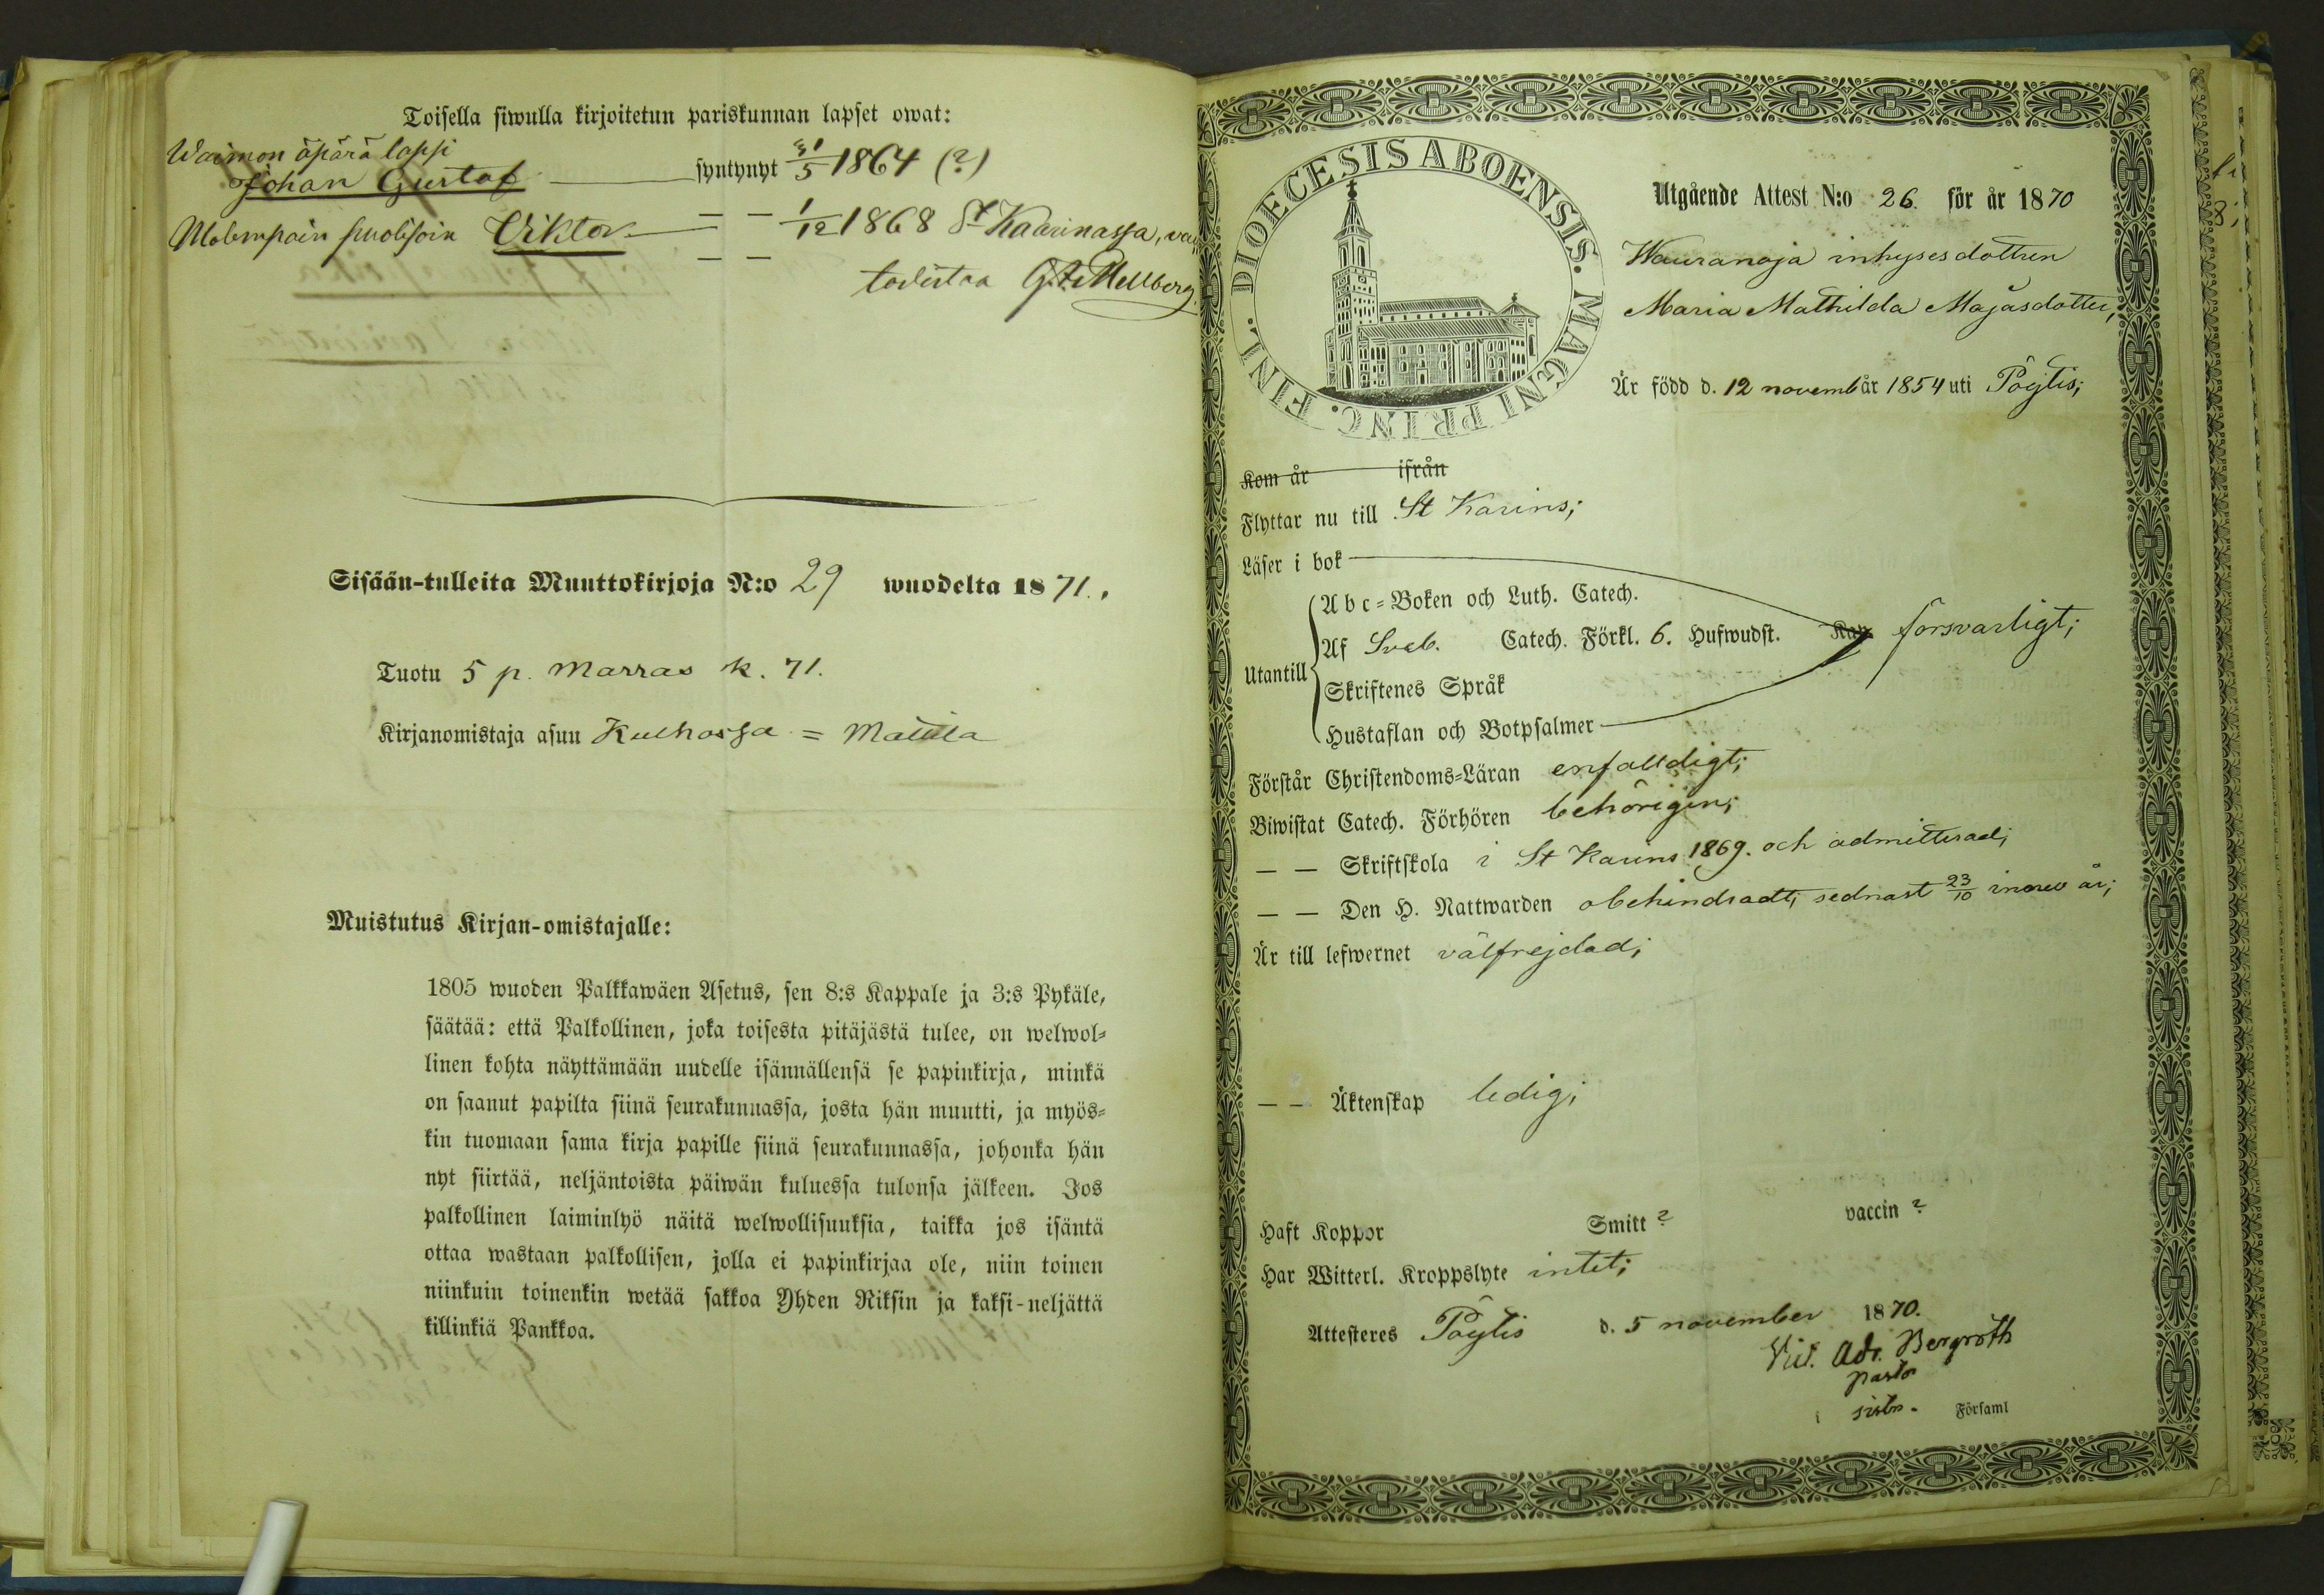 Toisella siwulla kirjoitetun pariskunnan lapset owat:
Waimon äpärä lapsi
Johan Gustaf syntynyt 31/5 1864 (?)
Molempain puolisoin Viktor — — 1/12 1868 St Kaarinassa,
— —
todistaa G. A. Mellberg.
Sisään-tulleita Muuttokirjoja N:o 29 wuodelta 1871.
Tuotu 5 p. Marras k. 71.
Kirjanomistaja asuu = Mattila
Muistutus Kirjan-omistajalle:
1805 wuoden Palkkawäen Asetus, sen 8:s Kappale ja 3:s Pykäle,
säätää: että Palkollinen, joka toisesta pitäjästä tulee, on welwol-
linen kohta näyttämään uudelle isännällensä se papinkirja, minkä
on saanut papilta siinä seurakunnassa, josta hän muutti, ja myös-
kin tuomaan sama kirja papille siinä seurakunnassa, johonka hän
nyt siirtää, neljäntoista päiwän kuluessa tulonsa jälkeen. Jos
palkollinen laiminlyö näitä welwollisuuksia, taikka jos isäntä
ottaa wastaan palkollisen, jolla ei papinkirjaa ole, niin toinen
niinkuin toinenkin wetää sakkoa Yhden Riksin ja kaksi-neljättä
killinkiä Pankkoa.
DIOECESIS ABOENSIS. MAGNI PRINC. FINL.
Utgående Attest N:o 26. för år 1870
Wauranoja inhysesdottren
Maria Mathilda Majasdotter,
Är född d. 12 novemb år 1854 uti Pöytis;
Kom år ifrån
Flyttar nu till St Karins;
Läser i bok
Abc-Boken och Luth. Catech.
Af Sveb. Catech. Förkl. 6. Hufwudst. Kan försvarligt;
Utantill
Skriftenes Språk
Hustaflan och Botpsalmer
Förstår Christendoms-Läran enfalldigt;
Biwistat Catech. Förhören behörigen;
— — Skriftskola i St Karins 1869. och admitterad;
— — Den H. Nattwarden obehindradt, sednast 23/10 innev år;
Är till lefwernet välfrejdad;
— — Äktenskap ledig;
Haft Koppor Smitt ? vaccin ?
Har Witterl. Kroppslyte intet;
Attesteres Pöytis d. 5 november 1870.
Vict. Adr. Bergroth
pastor
i Församl